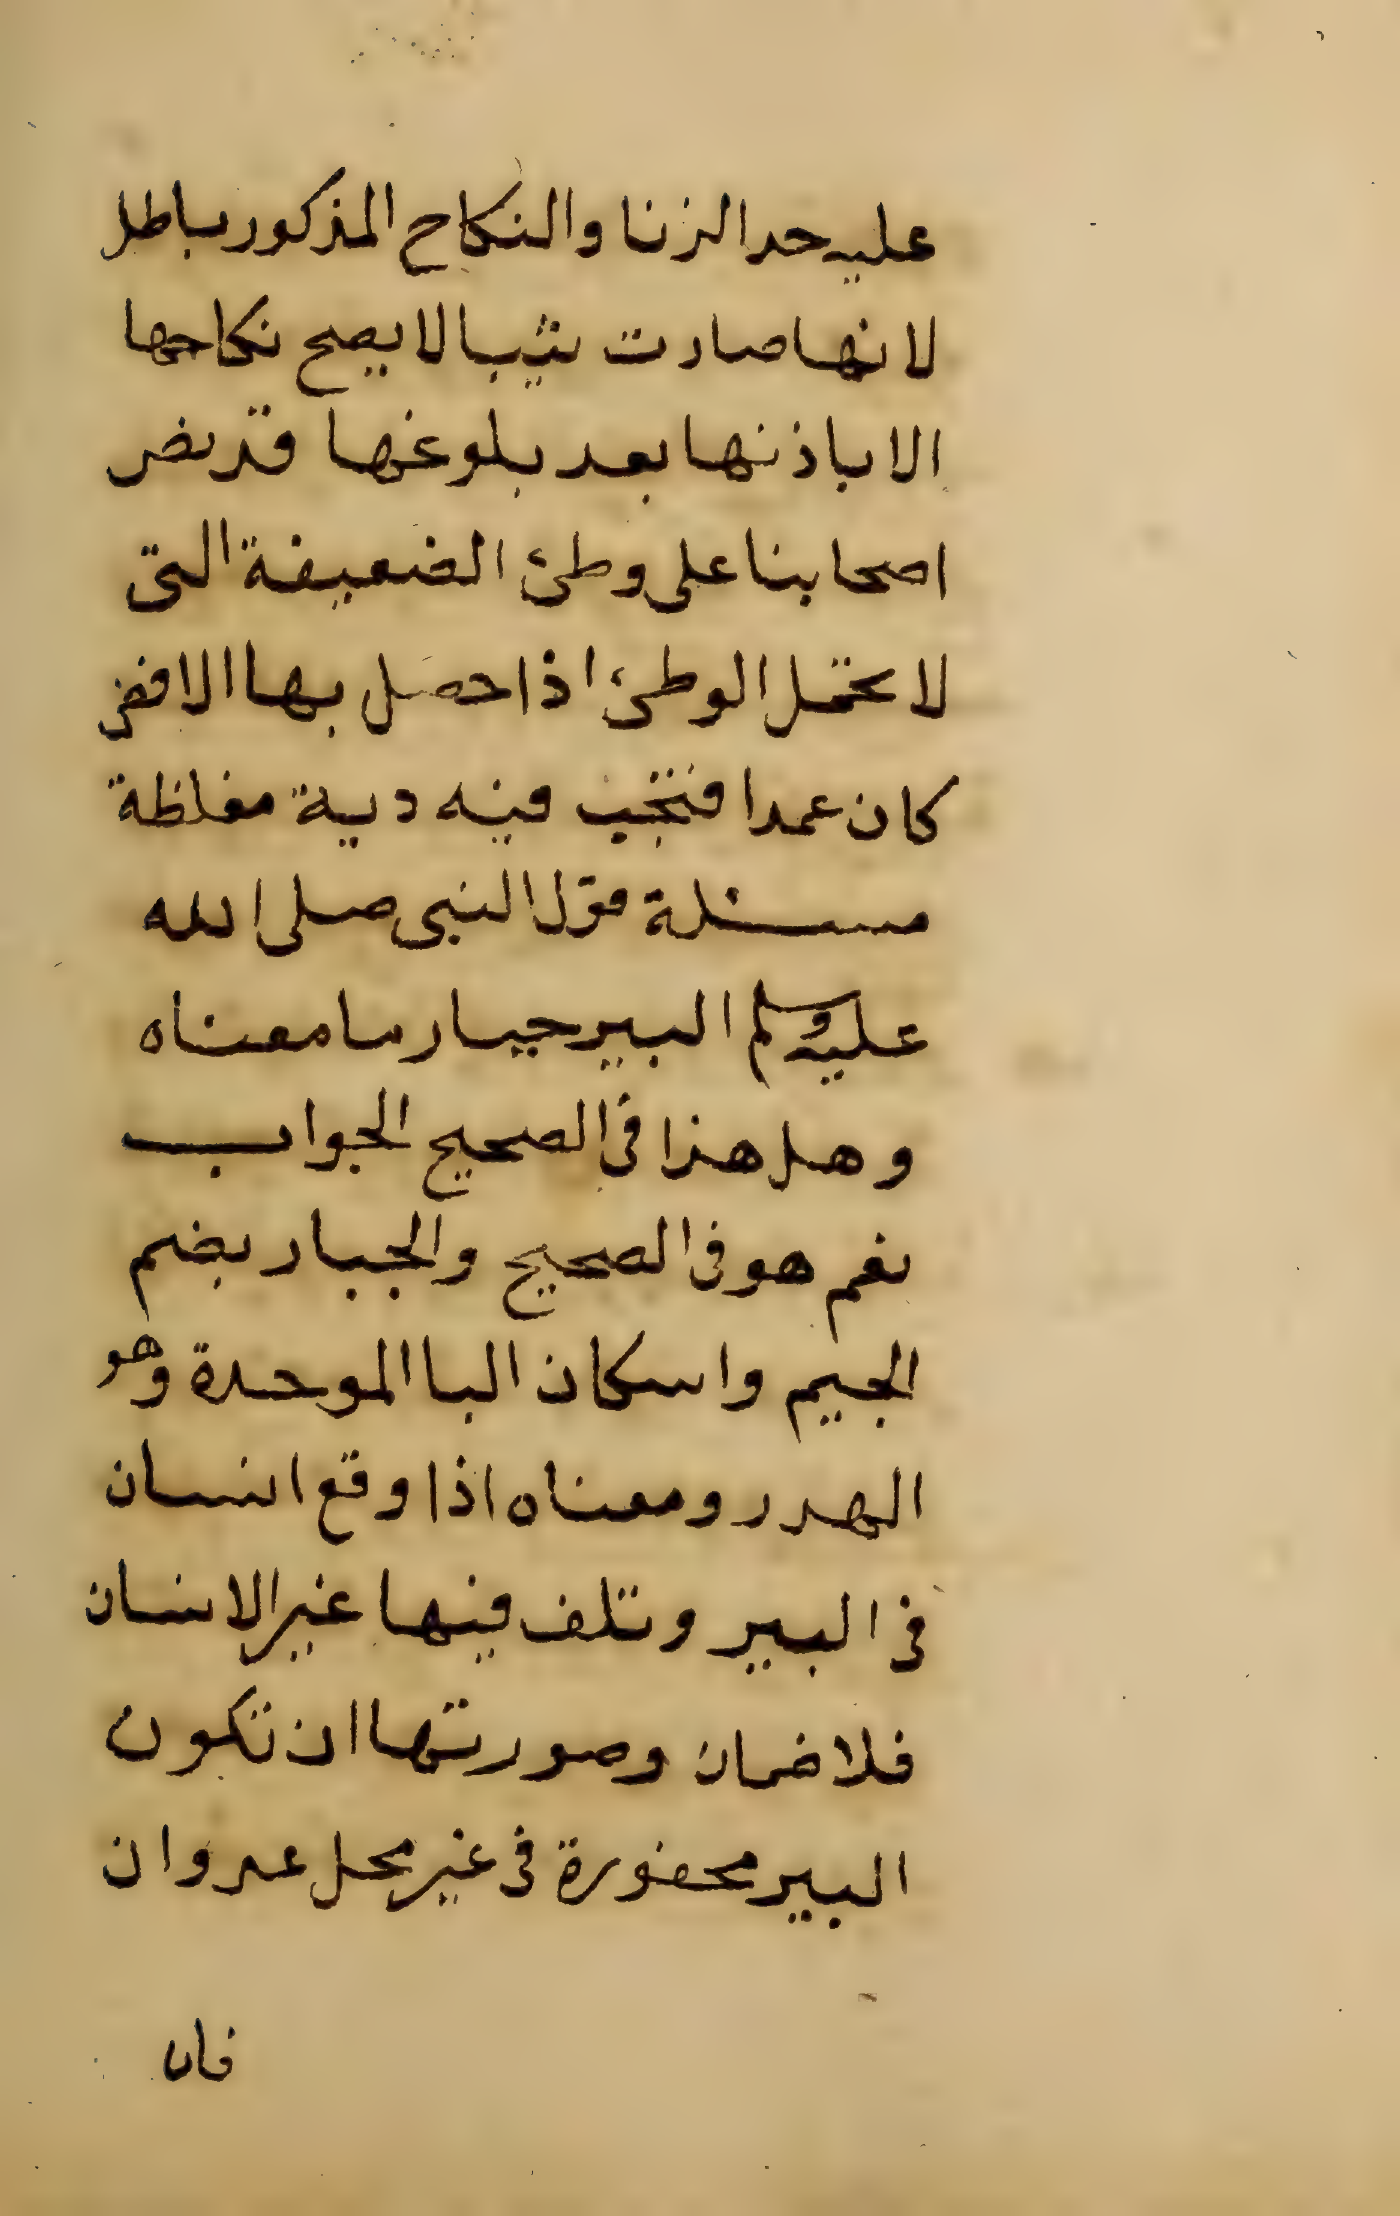 عليه حد الزنا والنكاح المذكور باطل
لانها صارت ثيبا لا يصح نكاحها
الا باذنها بعد بلوغها وقد نص
اصحابنا على وطئ الضعيفة التى
لا تحتمل الوطئ اذا حصل بها الافض
كان عمدا فتجب فيه دية مغلظة
مسئلة قول النبى صلى الله
عليه وسلم البير جبار ما معناه
وهل هذا فى الصحيح الجواب
نعم هو فى الصحيح والجبار بضم
الجيم واسكان البا الموحدة وهو
الهدر ومعناه اذا وقع انسان
فى البير وتلف فيها غير الانسان
فلا ضمان وصورتها ان تكون
البير محفورة فى غير محل عدوان
فان